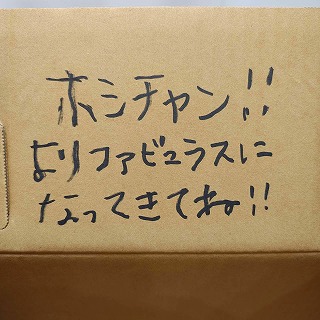 ホシチャン!!
よりファビュラスに
なってきてね!!